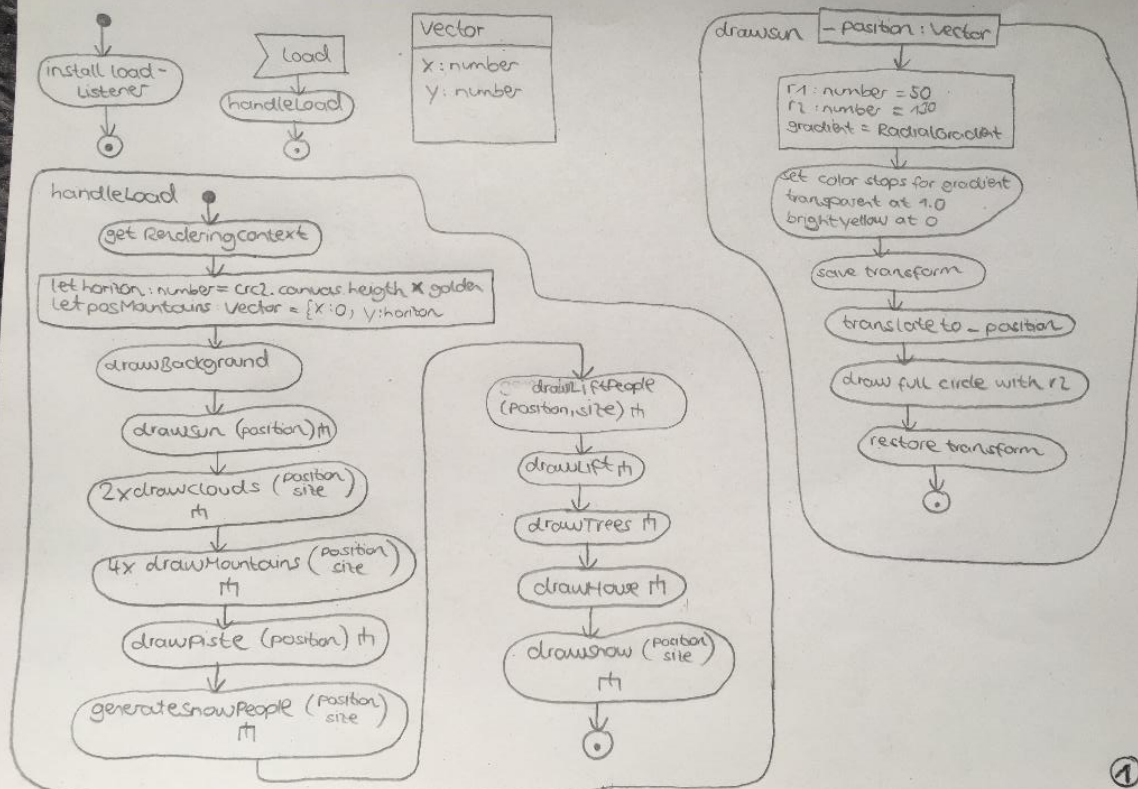 install load-
Listener
Load
handleLoad
Vector
x: number
y: number
handleLoad
get Renderingcontext
let horizon: number = crc2.canvas.heigth * golden
let posMountains: Vector = {x:0, y:horizon
drawBackground
drawSun (position)
2x drawClouds (position
size)
4x drawMountains (position
size)
drawPiste (position)
generateSnowPeople (position
size)
drawLiftPeople
(position, size)
drawLift
drawTrees
drawHouse
drawSnow (position
size)
drawSun
_position: Vector
r1: number = 50
r2: number = 130
gradient = RadialGradient
set color stops for gradient
transparent at 1.0
bright yellow at 0
save transform
translate to _position
draw full circle with r2
restore transform
1